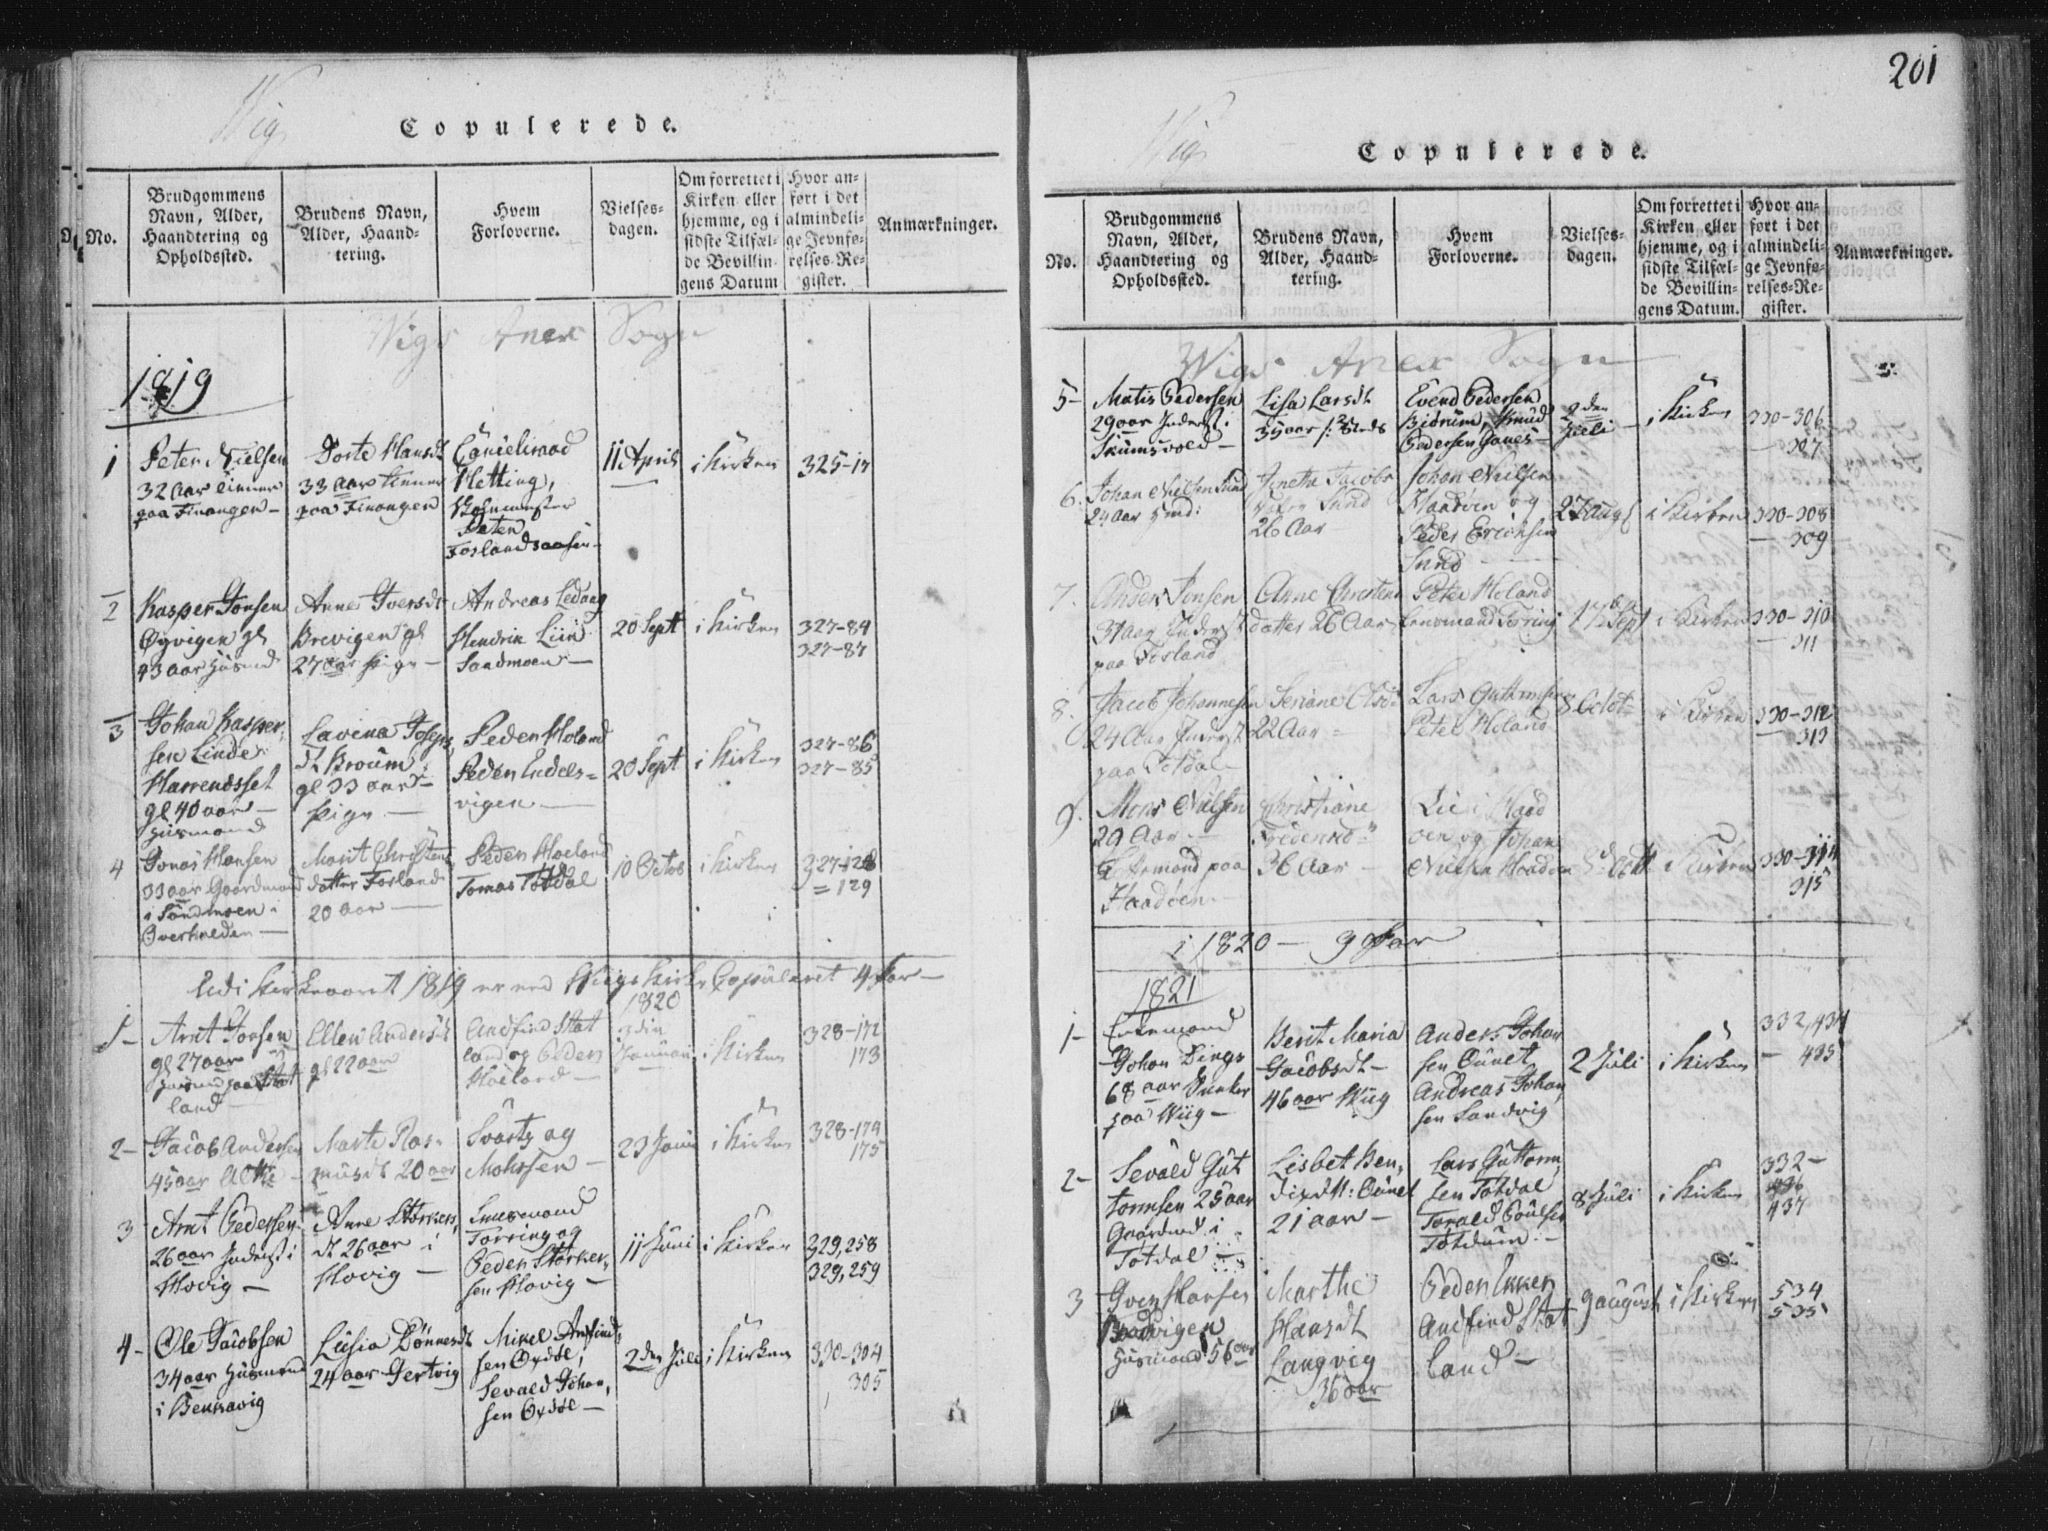 Wig
Copulerede.
No.
Brudgommens
Navn, Alder,
Haandtering og
Opholdssted.
Brudens Navn,
Alder, Haand-
tering.
Hvem
Forloverne.
Vielses-
dagen.
Om forrettet i
Kirken eller
hjemme, og i
sidste Tilfæl-
de Bevillin-
gens Datum
Hvor an-
ført i det
almindeli-
ge Jevnfø-
relses-Re-
gister.
Anmærkninger.
Wigs Anex Sogn
1819
1
Peter Nielsen
32 aar tienner
paa Finangen
Dorte Hansdt
33 aar tienner
paa Finangen
Hetting,
Peter
Foslandsaasen
11 April
i Kirken
325-17
2
Kasper Jonsen
Öyvigen gl
43 aar Husmd
Anne Iversdt
Brevigen gl
27 aar pige
Andreas Ledang
Hendrik Liin
Sandmoen
20 Sept
i Kirken
327-84
327-87
3
Johan Kasper-
sen Linde
Harrendsset
gl 40 aar
Husmand
Lavina Joseps
dt Broum
gl 33 aar
pige
Peder Holand
Peder Endels-
vigen
20 Sept
i Kirken
327-86
327-85
4
Jonas Hansen
33 aar Gaardmand
i Sandmoen
Overhalden
Marit Christens
datter Fosland
20 aar
Peder Hoeland
Tomas Totdal
10 Octob
i Kirken
327-128
= 129
Udi Kirkeaaret 1819 er ved Wiigs Kirke Copuleret 4 Par
1820
1
Arnt Jonsen
gl 27 aar
Husmd paa Stat
land
Ellen Andersdt
gl 22 aar
Andfind Stat
land og Peder
Hoeland
3die
Januari
i Kirken
328-172
173
2
Jacob Andersen
45 aar
Marte Ras-
musdt 20 aar
Svartz og
Mohrsen
23 Juni
i Kirken
328-174
175
3
Arnt Pedersen
26 aar Inderst i
Hovig
Anne Störkers
dt 26 aar i
Hovig
Lensmand
Torring og
Peder Störker-
sen Hovig
11 Juni
i Kirken
329,258
329,259
4
Ole Jacobsen
34 aar Husmand
i Benkavig
Lusia Dönnesdt
24 aar Tertvig
Mikel Anfind-
sen Oxdöl,
Sevald Johan-
sen Oxdöl
2den Juli
i Kirken
330-304
305
201
Wig
Copulerede.
No.
Brudgommens
Navn, Alder,
Haandtering og
Opholdssted.
Brudens Navn,
Alder, Haand-
tering.
Hvem
Forloverne.
Vielses-
dagen.
Om forrettet i
Kirken eller
hjemme, og i
sidste Tilfæl-
de Bevillin-
gens Datum.
Hvor an-
ført i det
almindeli-
ge Jevnfø-
relses-Re-
gister.
Anmærkninger.
Wigs Anex Sogn
5
Matis Pedersen
29 aar Inderst i
Skiumsvold
Lisa Larsdt
35 aar
Evend Pedersen
Bidrum, Knud
Pedersen
2den
Juli
i Kirken
330-306
307
6
Johan Nielsen Sund
24 aar
Jacobs
Sund
26 Aar
Johan Nielsen
Haadöen og
Peder Erichsen
Sund
27 Aug
i Kirken
330-308
309
7
Anders Jonsen
31 aar Inderst
paa Fosland
Anne Christens
datter 26 Aar
Peter Holand
Lensmand Töring
17 Sept
i Kirken
330-310
311
8
Jacob Johannesen
24 Aar Inderst
paa Totdal
Seriane Olsd
22 Aar
Lars Guttormsen
Peter Holand
8 Octob
i Kirken
330-312
313
9
Mons Nielsen
29 Aar
paa
Haadöen
Christiane
36 Aar
Lie i Haad
öen og Johan
Nielsen Haadöen
i Kirken
330-314
315
i 1820 — 9 Par
1821
1
Enkemand
Johan Dings
68 aar
paa Wiig
Berit Maria
Jacobsdt
46 aar Wiig
Anders Johan
sen Dunet
Andreas Johan
sen Sandvig
2 Juli
i Kirken
332,434
435
2
Sevald Gut
tormsen 25 aar
Gaardmd i
Totdal
Lisbet Ben-
dixdtt: Dunet
21 aar
Lars Guttorm
sen Totdal
Torald Poulsen
Totdum
8 Juli
i Kirken
332
436
437
3
Iver Hansen
Husmand 56 aar
Marthe
Hansdt
Langvig
36 aar
Peder Ekker
Andfind Stat
land
9 august
i Kirken
534
535